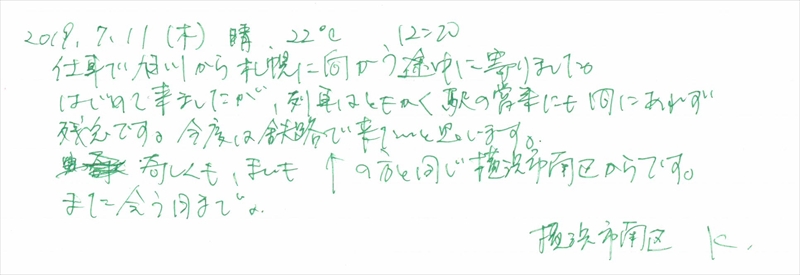 2019. 7. 11 (木) 晴. 22℃ 12:20
仕事で旭川から札幌に向かう途中に寄りました。
はじめて来ましたが、列車はともかく駅の営業にも間にあわず
残念です。今度は鉄路で来たいと思います。
奇しくも、まいも ↑の方と同じ横浜市南区からです。
また会う日まで。
横浜市南区 K.